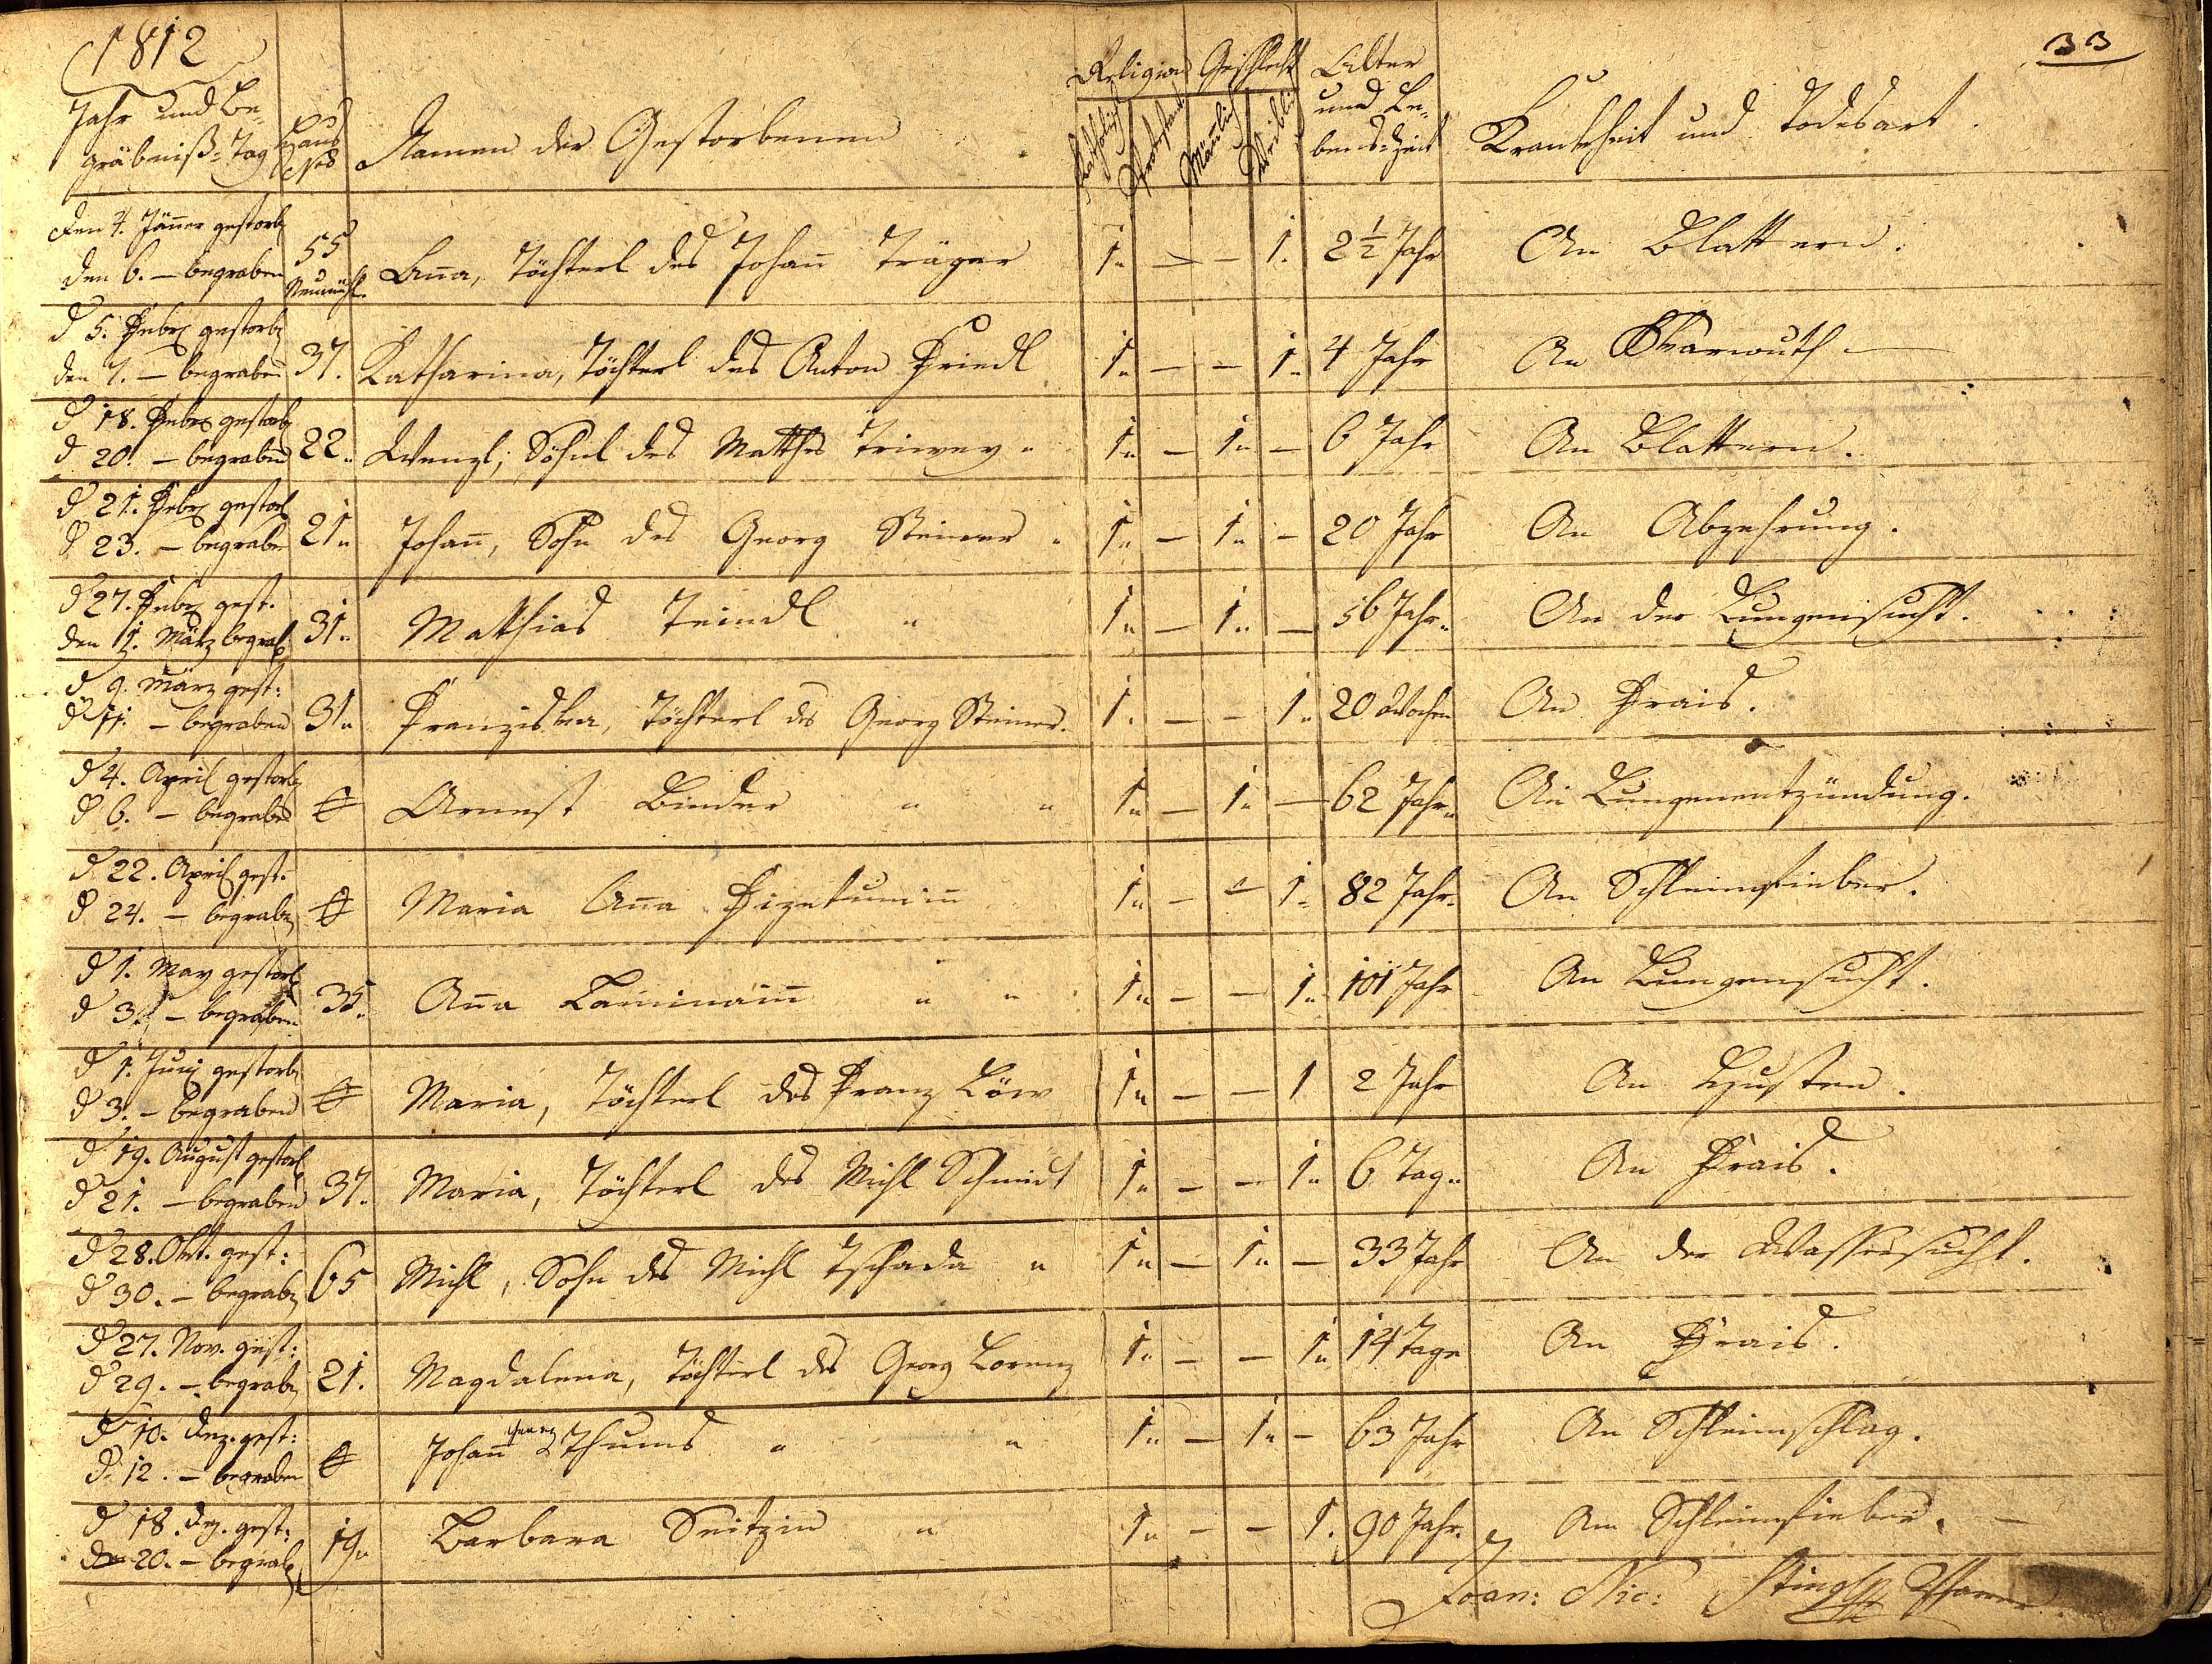 1812
33
Jahr und Be-
gräbniß-Tag
Haus
Nro
Namen der Gestorbenen
Religion
Katholisch
Protestant
Geschlecht
Mänlich
Weiblich
Alter
und Le-
bens-Zeit
Krankheit und Todesart.
den 4. Jäner gestorb
den 6. – begraben
55
Neumühl.
Ana, Töchterl des Johan Träger 1„ – – 1. 2 1/2 Jahr An Blattern.
d 5. Febr gestorb
den 7. – begraben
37. Katharina, Töchterl des Anton Friedl 1„ – – 1„ 4 Jahr An
d 18. Febr gestorb
d 20. – begraben
22„ Wenzl, Söhnl des Mathes 1„ – 1„ – 6 Jahr An Blattern.
d 21. Febr gestorb
d 23. – begraben
21„ Johan, Sohn des Georg Steiner „ 1„ – 1„ – 20 Jahr An Abzehrung.
d 27. Febr gest.
den 1. März begrab
31„ Mathias Teindl „ 1„ – 1„ – 56 Jahr„ An der Lungensucht.
d 9. März gest:
d 11. – begraben
31„ Franziska, Töchterl des Georg Steiner. 1. – – 1„ 20 Wochen An Frais.
d 4. April gestorb
d 6. – begraben
Ernest Binder „ „ 1„ – 1„ – 62 Jahr„ An Lungenentzündung.
d. 22. April gest.
d 24. – begrab
Maria Ana 1„ – – 1„ 82 Jahr. An Schleimfieber.
d 1. May gestorb
d 3. – begraben
35. Ana „ „ 1„ – – 1„ 101 Jahr An Lungensucht.
d 1. Junj gestorb
d 3. – begraben
Maria, Töchterl des Franz Löw 1„ – – 1 2 Jahr An Husten.
d 19. August gestorb
d 21. – begraben
37. Maria, Töchterl des Michl Schmidt 1„ – – 1„ 6 Tag„ An Frais.
d 28. Okt. gest:
d 30. – begrab
65 Michl, Sohn des Michl Tschada „ 1„ – 1„ – 33 Jahr An der Wassersucht.
d 27. Nov. gest:
d 29. – begrab
21. Magdalena, Töchterl des Georg Lorenz 1„ – – 1„ 14 Tage An Frais.
d 10. Dez. gest:
d. 12. – begraben
Johan Georg Thums „ „ 1„ – 1„ – 63 Jahr An Schleimschlag.
d 18. Dez. gest:
den 20. – begrab
19„ Barbara Seitzin „ 1„ – – 1. 90 Jahr. Am Schleimfieber. –
Joan: Nic: Stingl Pfarrer